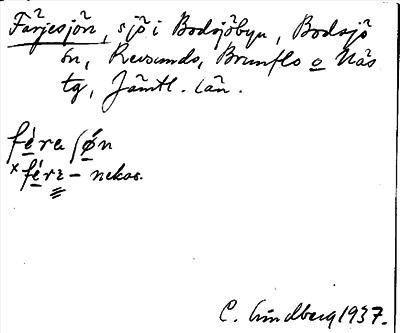 Färjesjön, sjö i Bodsjöbyn, Bodsjö
sn, Revsunds, Brunflo o Näs
tg, Jämtl. län.
féra ʃǿn
×férɛ – nekas.
C. Lindberg 1937.